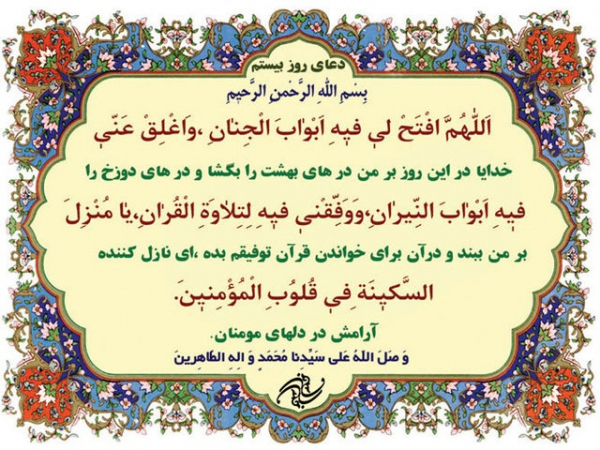 دعای روز بیستم
بِسْمِ اللهِ الرَّحْمنِ الرَّحیمِ
اَللّٰهُمَّ افْتَحْ لي فيٖهِ اَبْوٰابَ الْجِنٰانِ ،وَاَغْلِقْ عَنّي
خدایا در این روز بر من در های بهشت را بگشا و در های دوزخ را
فيٖهِ اَبْوٰابَ النّيرٰانِ،وَوَفِّقْني فيٖهِ لِتِلٰاوَةِ الْقُرٰانِ،يٰا مُنْزِلَ
بر من ببند و درآن برای خواندن قرآن توفیقم بده ،ای نازل کننده
السَّكيٖنَةِ فِي قُلُوبِ الْمُؤْمِنيٖنَ.
آرامش در دلهای مومنان.
وَ صَلَ اللهُ عَلی سَیِّدِنا مُحَمَدٍ وَ الِهِ الطّاهِرینَ